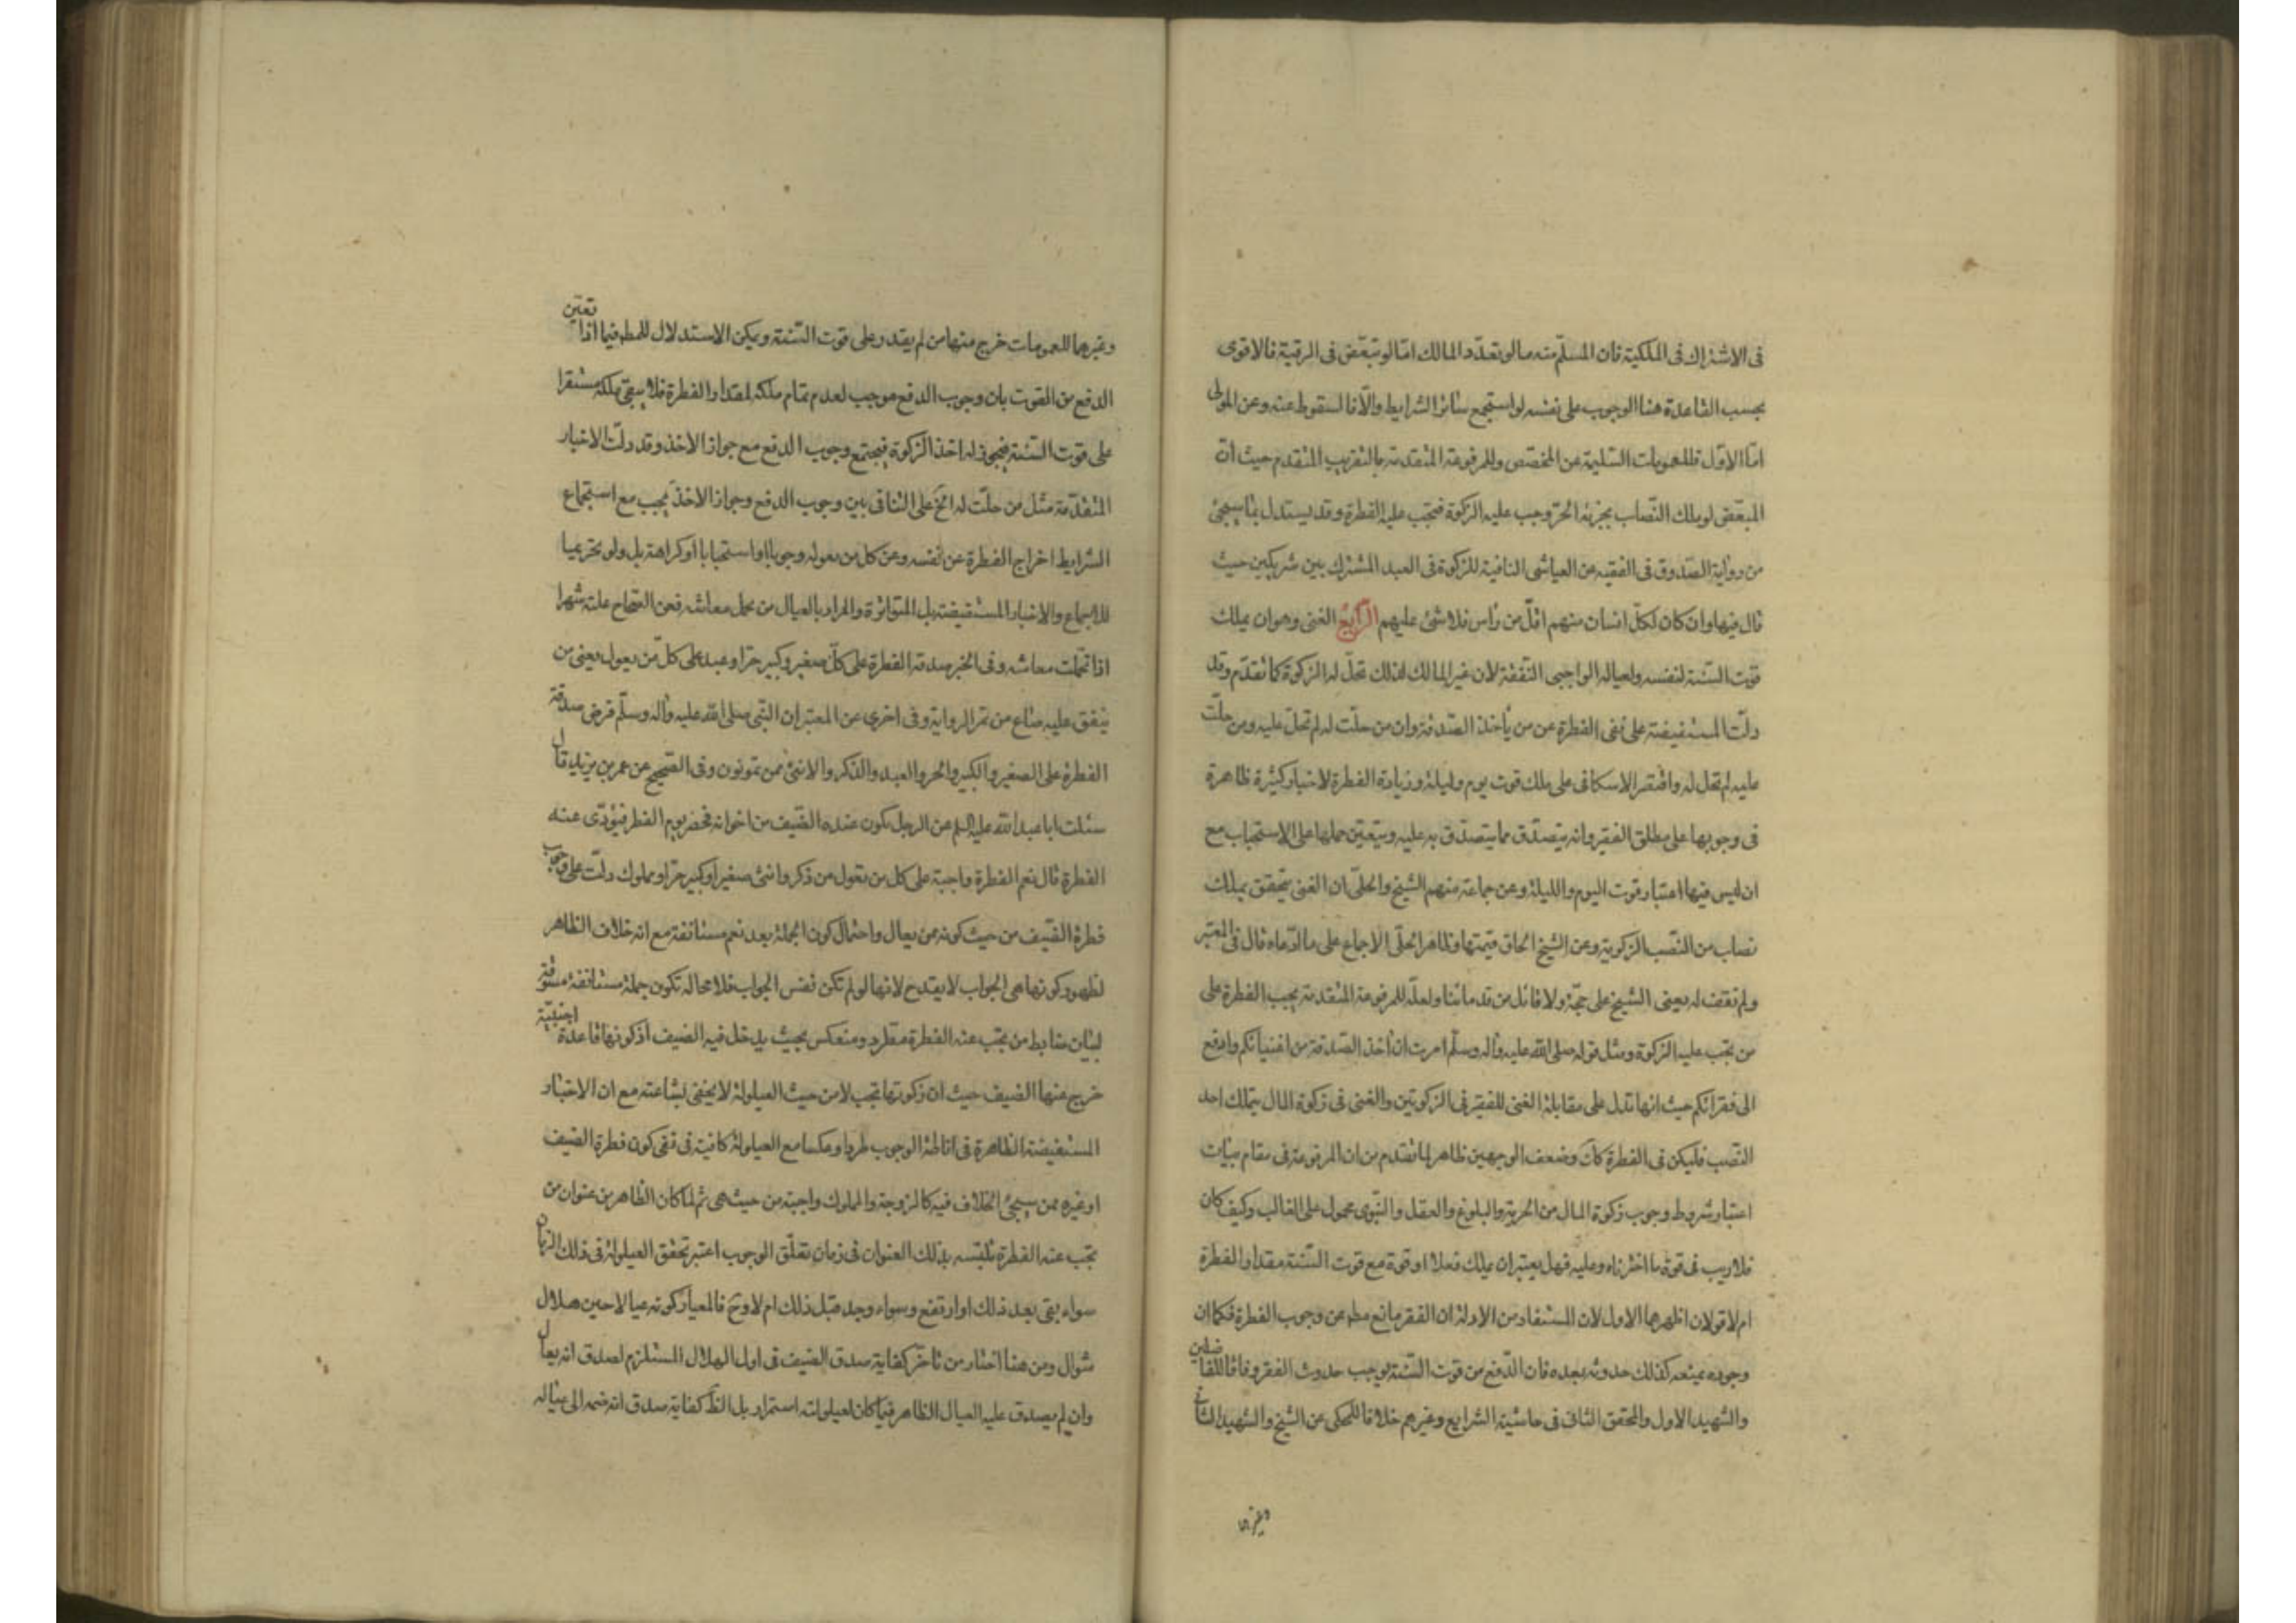 فى الاشتراك فى الملكية فان المسلم منه ما لو تعدّد المالك امّا لو تبعّض فى الرقية فالاقوى
بحسب القاعدة هنا الوجوب على نفسه لو استجمع سائر الشرايط والّا فالسقوط عنه وعن المولى
امّا الاوّل فللعمومات السليمة عن المخصّص وللمرفوعة المتقدمة بالتقريب المتقدم حيث انّ
المبعّض لو ملك النّصاب بجزئه الحرّ وجب عليه الزكوة فتجب عليه الفطرة وقد يستدل بما سيجئ
من رواية الصّدوق فى الفقيه عن العياشى النافية للزكوة فى العبد المشترك بين شريكين حيث
قال فيها وان كان لكلّ انسان منهم اقلّ من رأس فلا شئ عليهم الرّابع الغنى وهو ان يملك
قوت السّنة لنفسه ولعياله الواجبى النّفقة لان غير المالك لذلك تحلّ له الزكوة كما تقدّم وقد
دلّت المستفيضة على نفى الفطرة عن من يأخذ الصّدقة وان من حلّت له لم تحلّ عليه ومن حلّت
عليه لم تحل له واقتصر الاسكافى على ملك قوت يوم وليلة وزيادة الفطرة لاخبار كثيرة ظاهرة
فى وجوبها على مطلق الفقير وانه يتصدّق مما يتصدّق به عليه ويتعيّن حملها على الاستحباب مع
ان ليس فيها اعتبار قوت اليوم والليلة وعن جماعة منهم الشيخ والحلّى ان الغنى يتحقق بملك
نصاب من النّصب الزكوية وعن الشيخ الحاق قيمتها وظاهر الحلّى الاجماع على ما ادّعاه قال فى المعتبر
ولم نقف له يعنى الشيخ على حجّة ولا قائل من قدمائنا ولعلّه للمرفوعة المتقدمة يجب الفطرة على
من تجب عليه الزكوة ومثل قوله صلى الله عليه وآله وسلّم امرت ان اخذ الصّدقة من اغنيائكم وادفع
الى فقرائكم حيث انها تدل على مقابلة الغنى للفقير فى الزكوتين والغنى فى زكوة المال بتملك احد
النّصب فليكن فى الفطرة كك وضعف الوجهين ظاهر لما تقدم من ان المرفوعة فى مقام بيان
اعتبار شروط وجوب زكوة المال من الحرية والبلوغ والعقل والنّبوى محمول على الغالب وكيف كان
فلا ريب فى قوة ما اخترناه وعليه فهل يعتبر ان يملك فعلا او قوة مع قوت السّنة مقدار الفطرة
ام لا قولان اظهرهما الاول لان المستفاد من الادلة ان الفقر مانع مطم عن وجوب الفطرة فكما ان
وجوده يمنعه كذلك حدوثه بعده فان الدّفع من قوت السّنة يوجب حدوث الفقر وفاقا للفاضلين
والشهيد الاول والمحقق الثانى فى حاشية الشرايع وغيرهم خلافا للمحكى عن الشيخ والشهيد الثانى
وغيرهما
وغيرهما للعمومات خرج منها من لم يقدر على قوت السّنة ويمكن الاستدلال للمط فيما اذا تعيّن
الدفع من القوت بان وجوب الدفع موجب لعدم تمام ملكه لمقدار الفطرة فلا يبقى ملكه مستقرا
على قوت السّنة فيجوز له اخذ الزكوة فيجتمع وجوب الدفع مع جواز الاخذ وقد دلّت الاخبار
المتقدّمة مثل من حلّت له الخ على التنافى بين وجوب الدفع وجواز الاخذ يجب مع استجماع
الشرايط اخراج الفطرة عن نفسه وعن كل من يعوله وجوبا او استحبابا او كراهة بل ولو تحريما
للاجماع والاخبار المستفيضة بل المتواترة والمراد بالعيال من يحمل معاشه فعن الصّحاح علته شهرا
اذا تحملت معاشه وفى الخبر صدقة الفطرة على كلّ صغير وكبير حرّ او عبد على كلّ من يعول يعنى من
ينفق عليه صاع من تمر الرواية وفى اخرى عن المعتبر ان النّبى صلى الله عليه وآله وسلّم فرض صدقة
الفطرة على الصغير والكبير والحر والعبد والذكر والانثى ممن تمونون وفى الصّحيح عن عمر بن يزيد قال
سئلت ابا عبد الله عليه السلم عن الرجل يكون عنده الضّيف من اخوانه فحضر يوم الفطر فيؤدّى عنه
الفطرة قال نعم الفطرة واجبة على كل من تعول من ذكر وانثى صغير او كبير حرّ او مملوك دلّت على وجوب
فطرة الضّيف من حيث كونه ممن يعال واحتمال كون الجملة بعد نعم مستانفة مع انه خلاف الظاهر
لظهور كونها هى الجواب لا يقدح لانها لو لم تكن نفس الجواب فلا محالة تكون جملة مستانفة مسوقة
لبيان ضابط من تجب عنه الفطرة مطّرد ومنعكس بحيث يدخل فيه الضيف اذ كونها قاعدة اجنبية
خرج عنها الضيف حيث ان زكوتها تجب لا من حيث العيلولة لا يخفى بشاعته مع ان الاخبار
المستفيضة الظاهرة فى اناطة الوجوب طردا وعكسا مع العيلولة كافية فى نفى كون فطرة الضيف
او غيره ممن سيجئ الخلاف فيه كالزوجة والمملوك واجبة من حيث هى ثم لما كان الظاهر من عنوان من
تجب عنه الفطرة تلبّسه بذلك العنوان فى زمان تعلّق الوجوب اعتبر تحقق العيلولة فى ذلك الزمان
سواء بقى بعد ذلك او ارتفع وسواء وجد قبل ذلك ام لا وح فالمعيار كونه عيالا حين هلال
شوال ومن هنا اختار من تاخّر كفاية صدق الضيف فى اول الهلال المستلزم لصدق انه يعال
وان لم يصدق عليه العيال الظاهر فيما كان لعيلولته استمرار بل الظّ كفاية صدق انه ضمه الى عياله